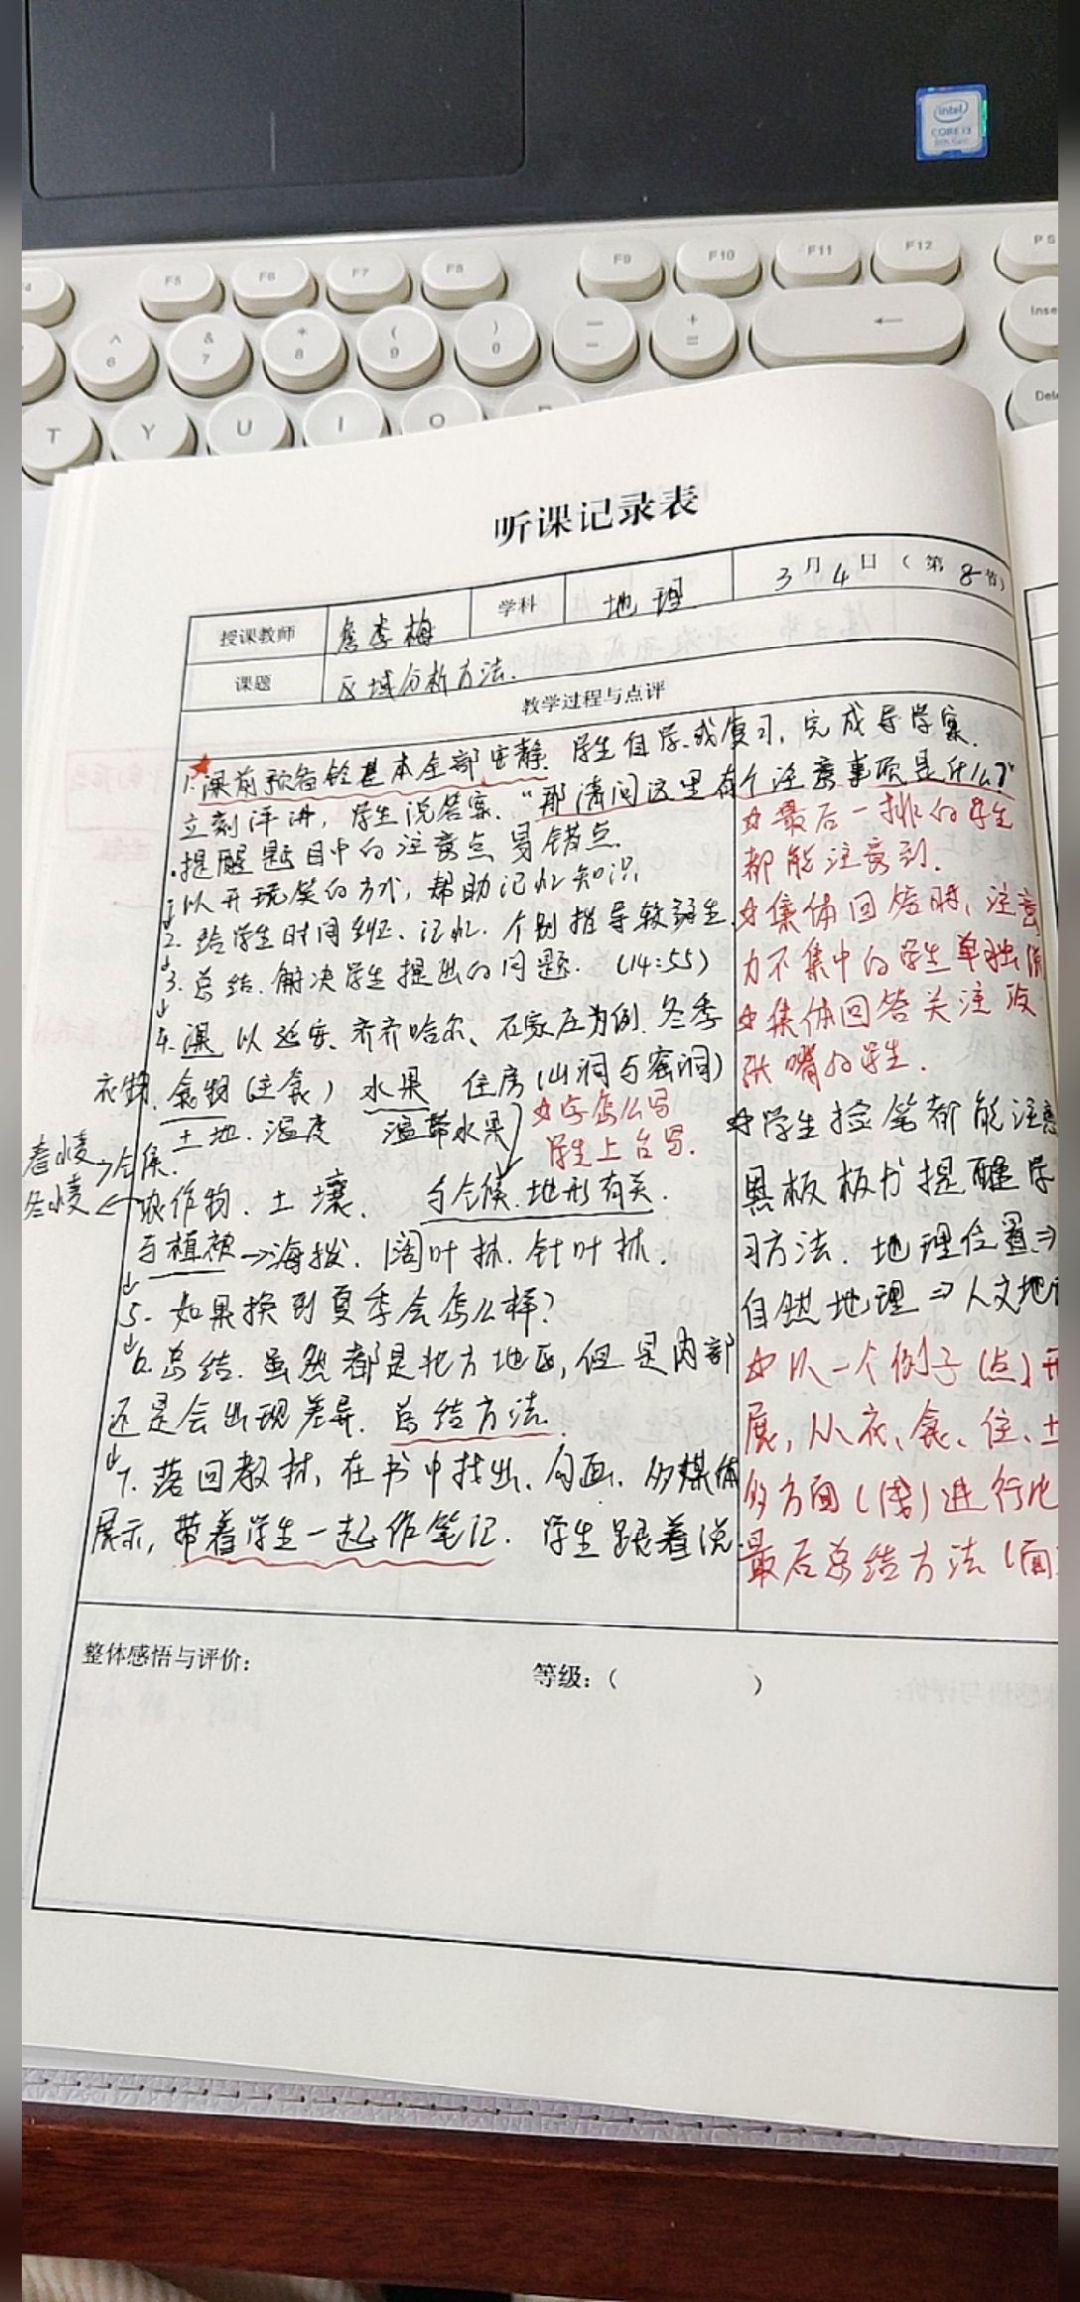 intel
CORE i3
F5 F6 F7 F8 F9 F10 F11 F12 PS
^ & * ( ) — +
6 7 8 9 0 - = ← Inse
T Y U I O Dele
听课记录表
授课教师 詹李梅 学科 地理 3月4日(第8节)
课题 区域分析方法.
教学过程与点评
1.课前预备铃基本全部安静. 学生自学或复习, 完成导学案.
立刻评讲, 学生说答案. “那请问这里有个注意事项是什么?”
·提醒题目中的注意点 易错点.
以开玩笑的方式, 帮助记忆知识.
2. 给学生时间. 记忆. 个别指导较弱生.
3. 总结. 解决学生提出的问题. (14:55)
4. 以延安、齐齐哈尔、石家庄为例. 冬季
衣物. 食物(主食) 水果 住房(山洞与窑洞)
土地. 温度 温带水果
☆字怎么写
学生上台写.
春小麦→气候.
冬小麦← 农作物. 土壤. 与气候.地形有关.
与植被→海拔. 阔叶林. 针叶林.
5. 如果换到夏季会怎么样?
6. 总结. 虽然都是北方地区, 但是内部
还是会出现差异. 总结方法.
7. 落回教材, 在书中找出、勾画. 多媒体
展示, 带着学生一起作笔记. 学生跟着说.
☆最后一排的学生
都能注意到.
☆集体回答时, 注意
力不集中的学生单独
☆集体回答关注没
张嘴的学生.
☆学生捡笔都能注意
黑板板书提醒学
习方法. 地理位置⇒
自然地理⇒人文地
☆以一个例子(点)开
展, 从衣、食、住、土
多方面 进行比
最后总结方法(面
整体感悟与评价:
等级:( )